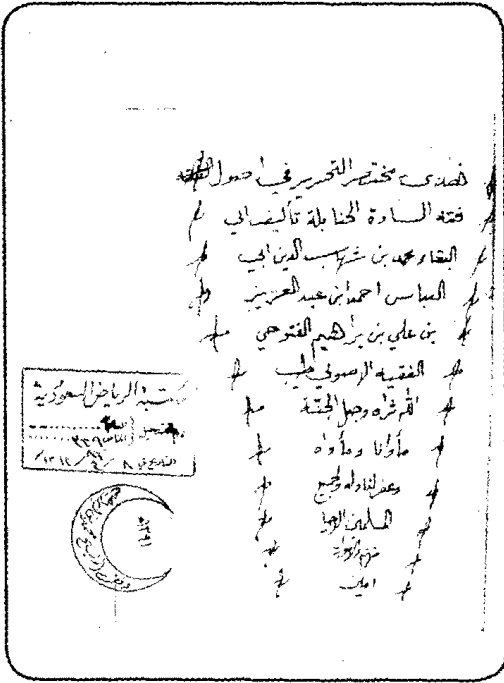 فهذا مختصر التحرير في اصول
فقه السادة الحنابلة تأليف ابي
البقاء محمد بن شهاب الدين ابي
العباس احمد ابن عبد العزيز
بن علي بن براهيم الفتوحي
الفقيه الاصولي طيب
الله ثراه وجعل الجنة
مأوانا ومأواه
وغفر لنا وله ولجميع
المسلمين الاحيا
منهم والاموات
امين
مكتبة الرياض السعودية